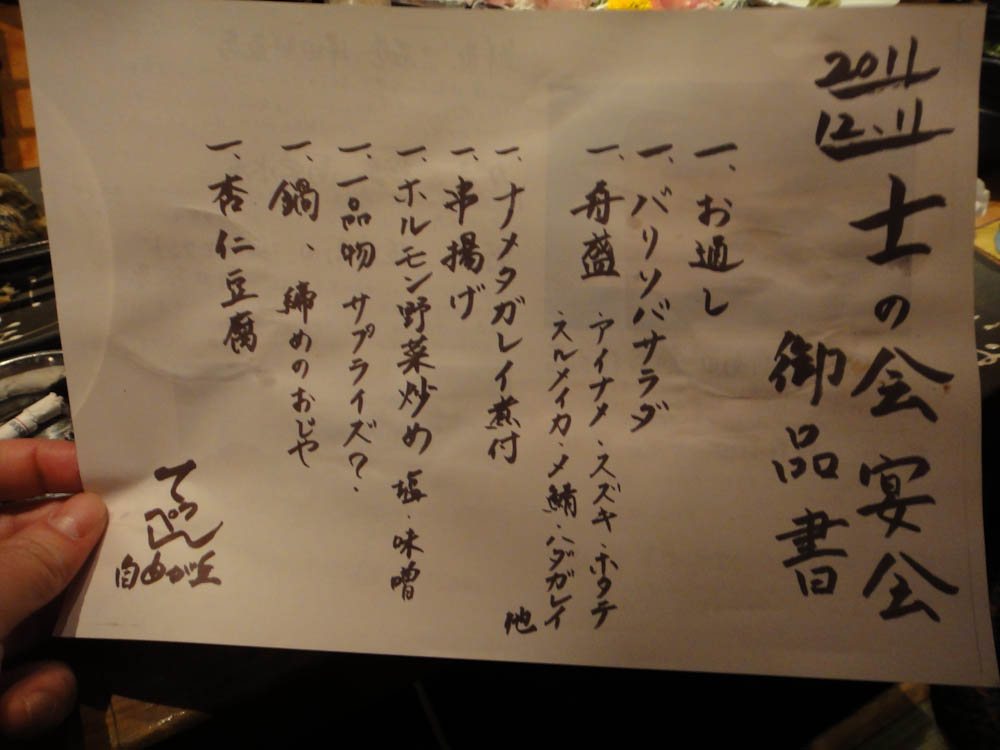 2011
12.11
士の会宴会
御品書
一、お通し
一、バリソバサラダ
一、舟盛
・アイナメ・スズキ・ホタテ
・スルメイカ・〆鯖・ハダガレイ
他
一、ナメタガレイ煮付
一、串揚げ
一、ホルモン野菜炒め 塩・味噌
一、一品物 サプライズ?.
一、鍋、締めのおじや
一、杏仁豆腐
てっぺん
自由が丘